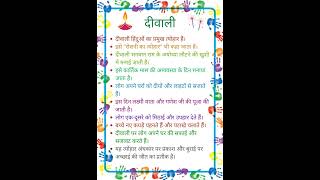 दीवाली
दीवाली हिंदुओं का प्रमुख त्योहार है।
इसे "रोशनी का त्योहार" भी कहा जाता है।
दीवाली भगवान राम के अयोध्या लौटने की खुशी
में मनाई जाती है।
इसे कार्तिक मास की अमावस्या के दिन मनाया
जाता है।
लोग अपने घरों को दीयों और लाइटों से सजाते
हैं।
इस दिन लक्ष्मी माता और गणेश जी की पूजा की
जाती है।
लोग एक-दूसरे को मिठाई और उपहार देते हैं।
बच्चे नए कपड़े पहनते हैं और पटाखे चलाते हैं।
दीवाली पर लोग अपने घर की सफाई और
सजावट करते हैं।
यह त्योहार अंधकार पर प्रकाश और बुराई पर
अच्छाई की जीत का प्रतीक है।